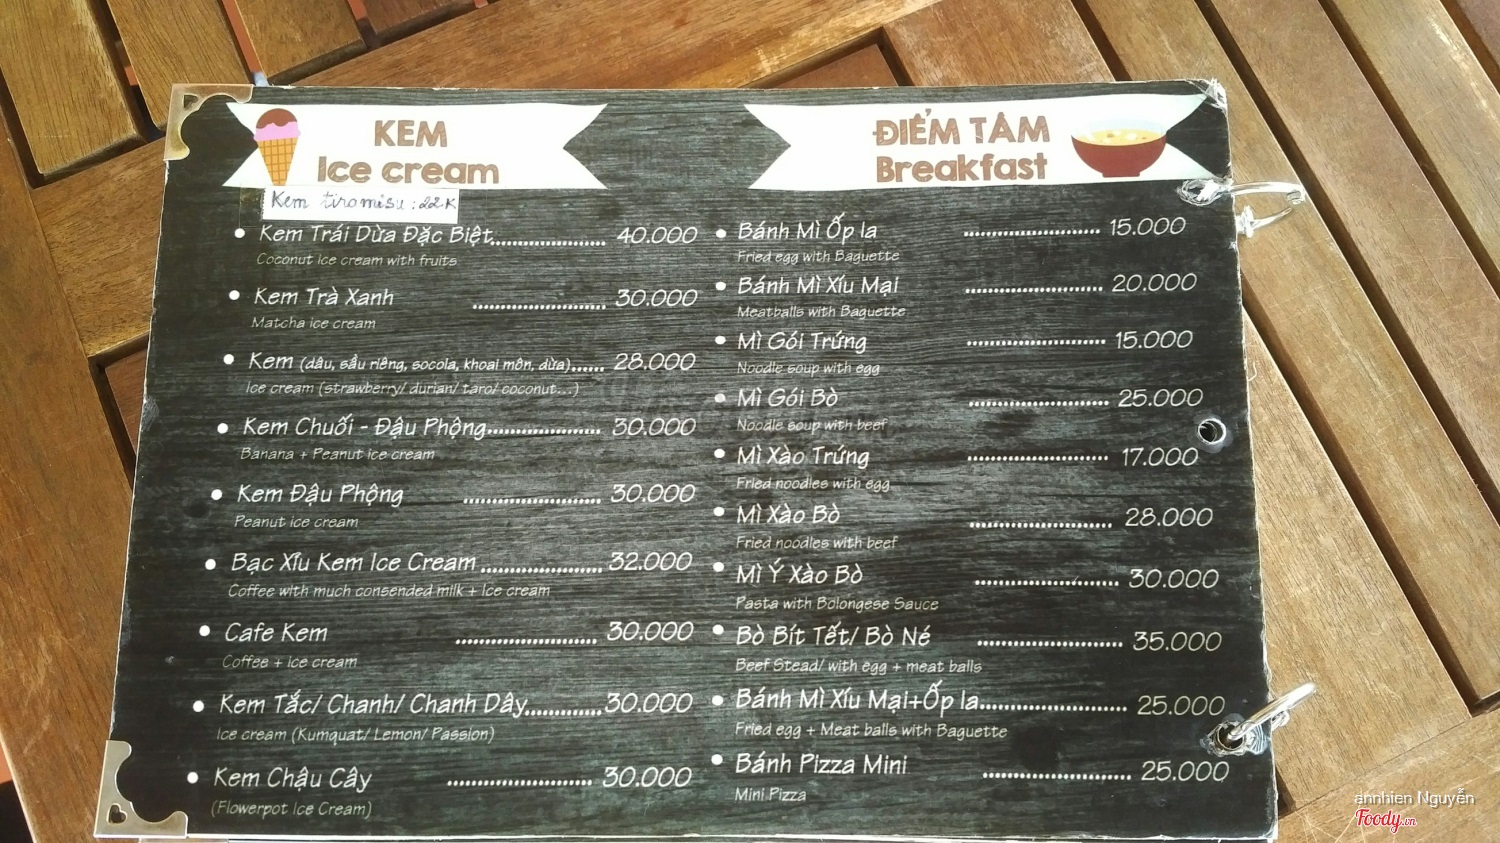 KEM
Ice cream
Kem tiramisu : 22K
Kem Trái Dừa Đặc Biệt 40.000
Coconut Ice cream with fruits
Kem Trà Xanh 30.000
Matcha ice cream
Kem (dâu, sầu riêng, socola, khoai môn, dừa) 28.000
Ice cream (strawberry/ durian/ taro/ coconut...)
Kem Chuối - Đậu Phộng 30.000
Banana + Peanut ice cream
Kem Đậu Phộng 30.000
Peanut ice cream
Bạc Xỉu Kem Ice Cream 32.000
Coffee with much consended milk + Ice cream
Cafe Kem 30.000
Coffee + ice cream
Kem Tắc/ Chanh/ Chanh Dây 30.000
Ice cream (Kumquat/ Lemon/ Passion)
Kem Chậu Cây 30.000
(Flowerpot Ice Cream)
ĐIỂM TÂM
Breakfast
Bánh Mì Ốp la 15.000
Fried egg with Baguette
Bánh Mì Xíu Mại 20.000
Meatballs with Baguette
Mì Gói Trứng 15.000
Noodle soup with egg
Mì Gói Bò 25.000
Noodle soup with beef
Mì Xào Trứng 17.000
Fried noodles with egg
Mì Xào Bò 28.000
Fried noodles with beef
Mì Ý Xào Bò 30.000
Pasta with Bolongese Sauce
Bò Bít Tết/ Bò Né 35.000
Beef Stead/ with egg + meat balls
Bánh Mì Xíu Mại+Ốp la 25.000
Fried egg + Meat balls with Baguette
Bánh Pizza Mini 25.000
Mini Pizza
annhien Nguyễn
Foody.vn